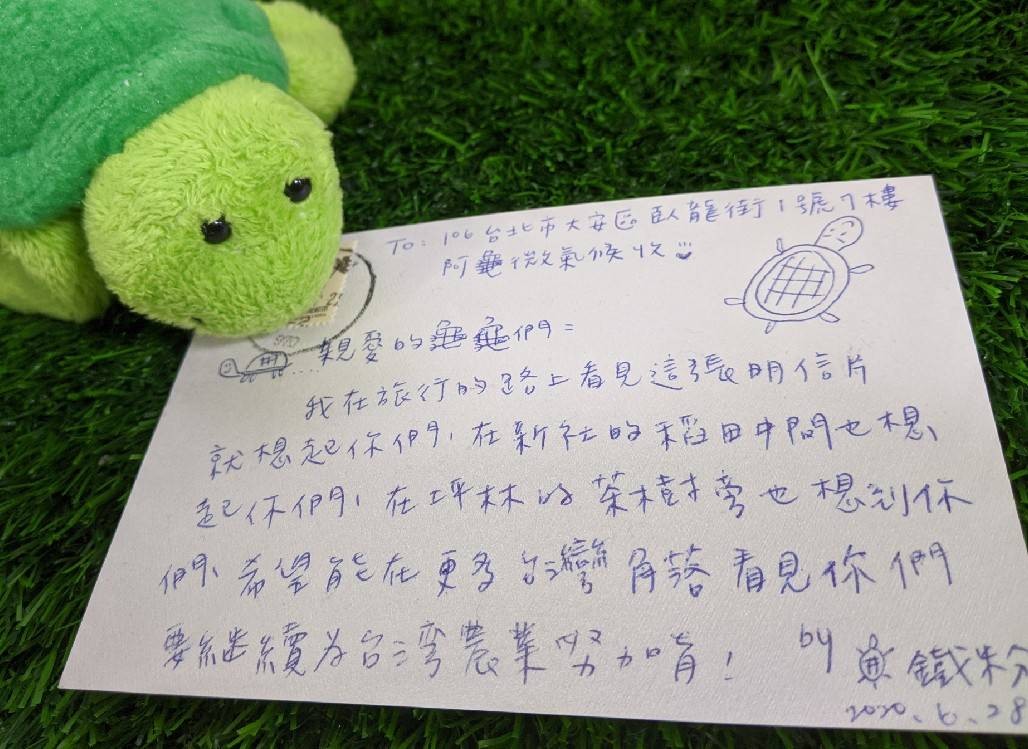 To: 106 台北市大安區臥龍街1號7樓
阿龜微氣候收
親愛的龜龜們:
我在旅行的路上看見這張明信片
就想起你們,在新社的稻田中間也想
起你們,在坪林的茶樹旁也想到你
們,希望能在更多台灣角落看見你們
要繼續為台灣農業努力加油! by 鐵粉
2020.6.28